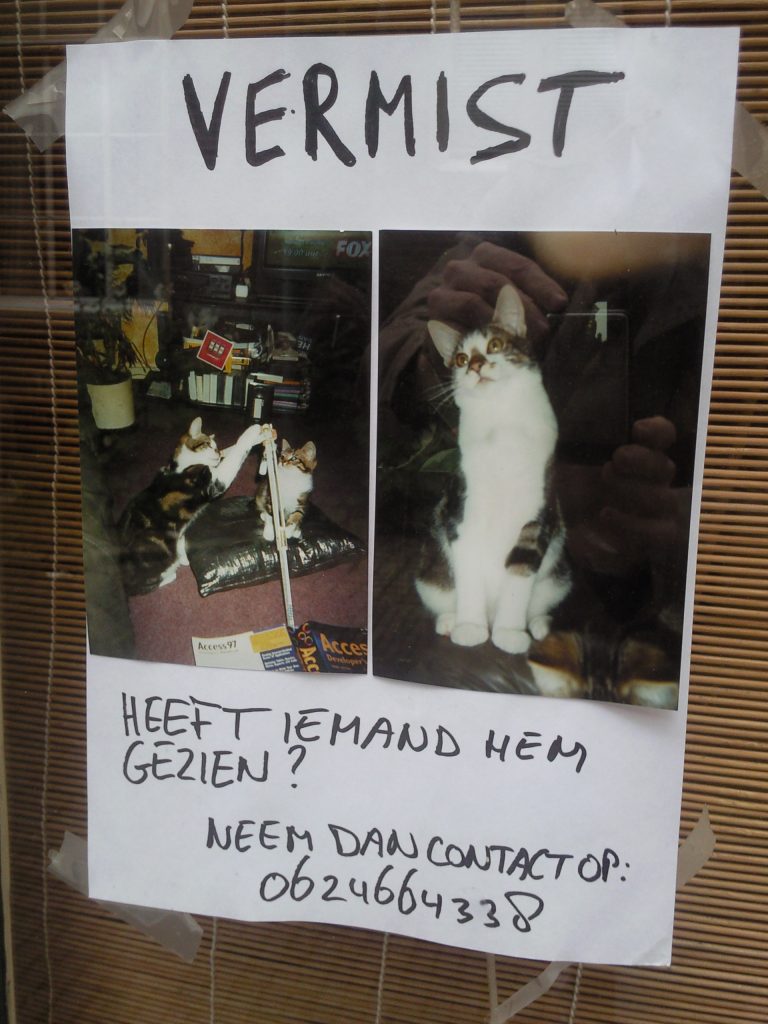 VERMIST
FOX
Access97
Acc
Acces
Developer's
HEEFT IEMAND HEM
GEZIEN?
NEEM DAN CONTACT OP:
0624664338